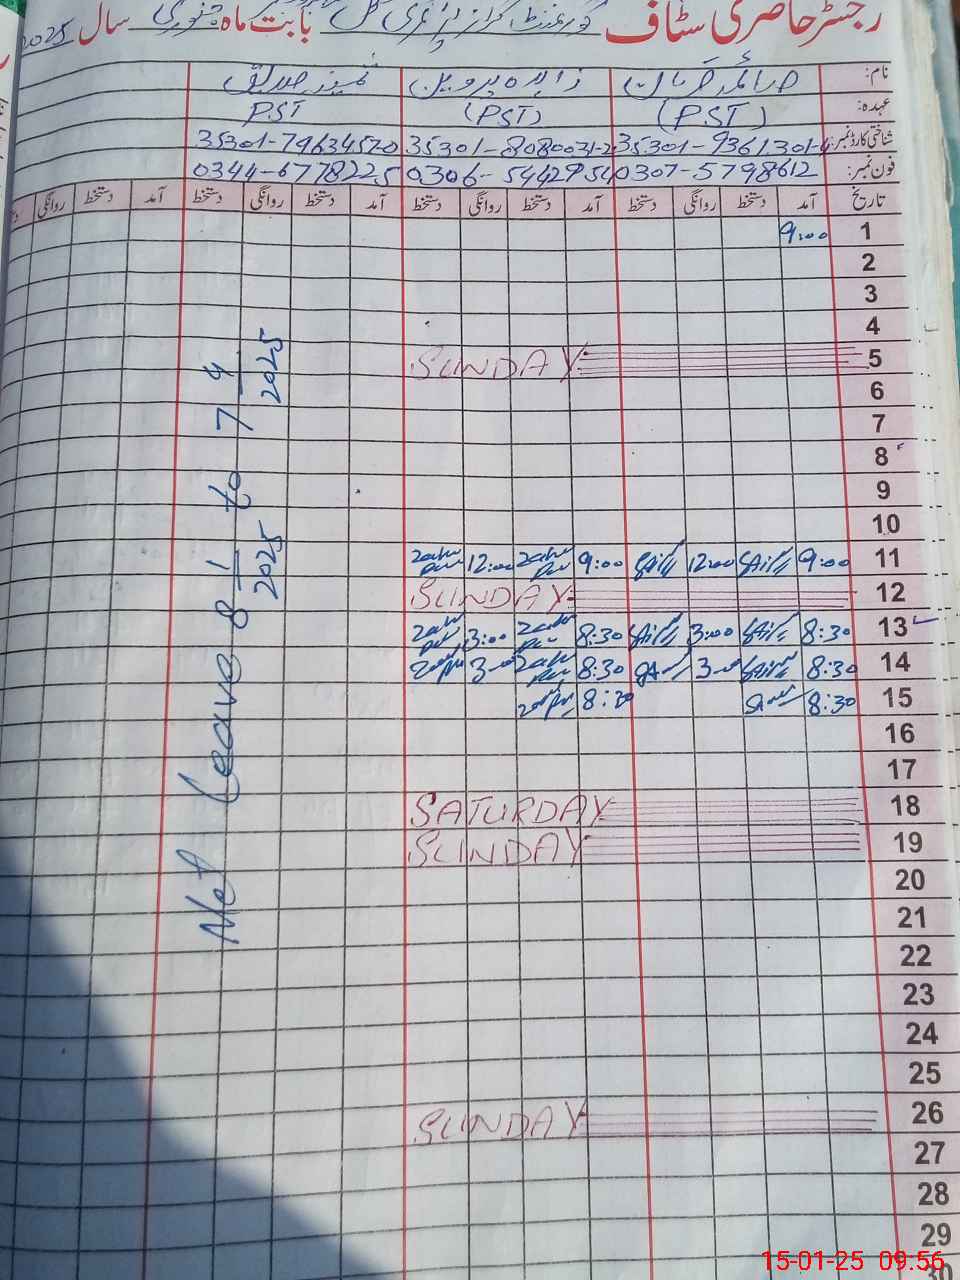 رجسٹر حاضری سٹاف گورنمنٹ گرلز پرائمری سکول بابت ماہ جنوری سال 2025
نام: صائمہ زاہدہ پروین ثمینہ صدیق
عہدہ: (PST) (PST) PST
شناختی کارڈ نمبر: 35301-9361301-4 35301-8080031-2 35301-79634520
فون نمبر: 0307-5798612 0306-5442954 0344-6778225
تاریخ آمد دستخط روانگی دستخط آمد دستخط روانگی دستخط آمد دستخط روانگی دستخط آمد دستخط روانگی
1 9:00
2
3
4
5 SUNDAY
6
7
8
9
10
11 9:00 12:00 9:00 12:00
12 SUNDAY
13 8:30 3:00 8:30 3:00
14 8:30 3:00 8:30 3:00
15 8:30 8:30
16
17
18 SATURDAY
19 SUNDAY
20
21
22
23
24
25
26 SUNDAY
27
28
29
30
Met Leave 8 1/2025 to 7 4/2025
15-01-25 09:56